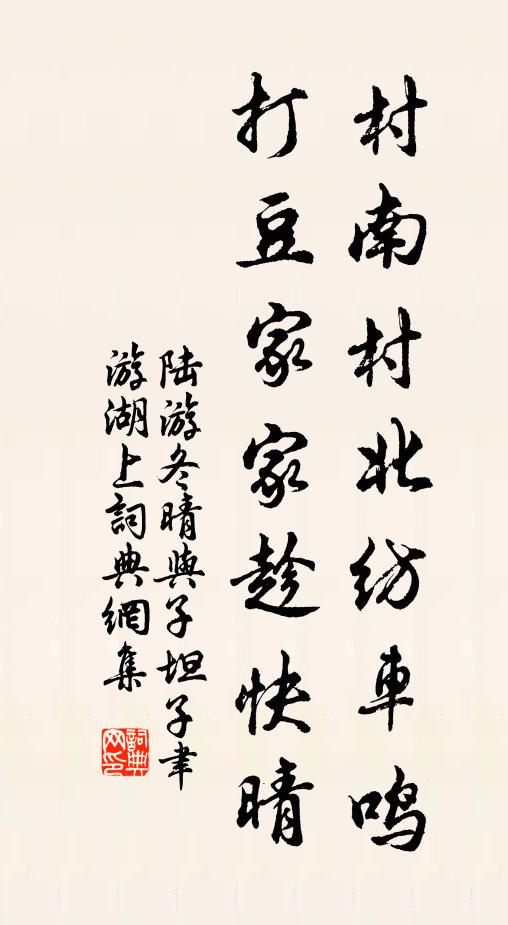 村南村北纺車鸣
打豆家家趁快晴
陆游冬晴與子坦子聿
游湖上詞典網集
詞典网印